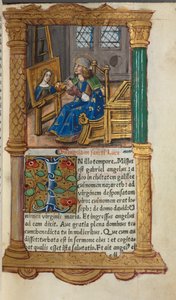 Secundum sanctum Lucā
IN illo tempore. Missus
est gabriel angelus a
deo in civitatem galilee
cui nomen nazareth: ad
virginem desponsatam
viro cui nomen erat io
seph: et nomen
virginis maria. Et ingressus angelus
ad eam dixit. Ave gratia plena dominus te
cum benedicta tu in mulieribus. Que cum
audisset turbata est in sermone eius: et cogita
bat qualis esset ista salutatio. Et ait angelus